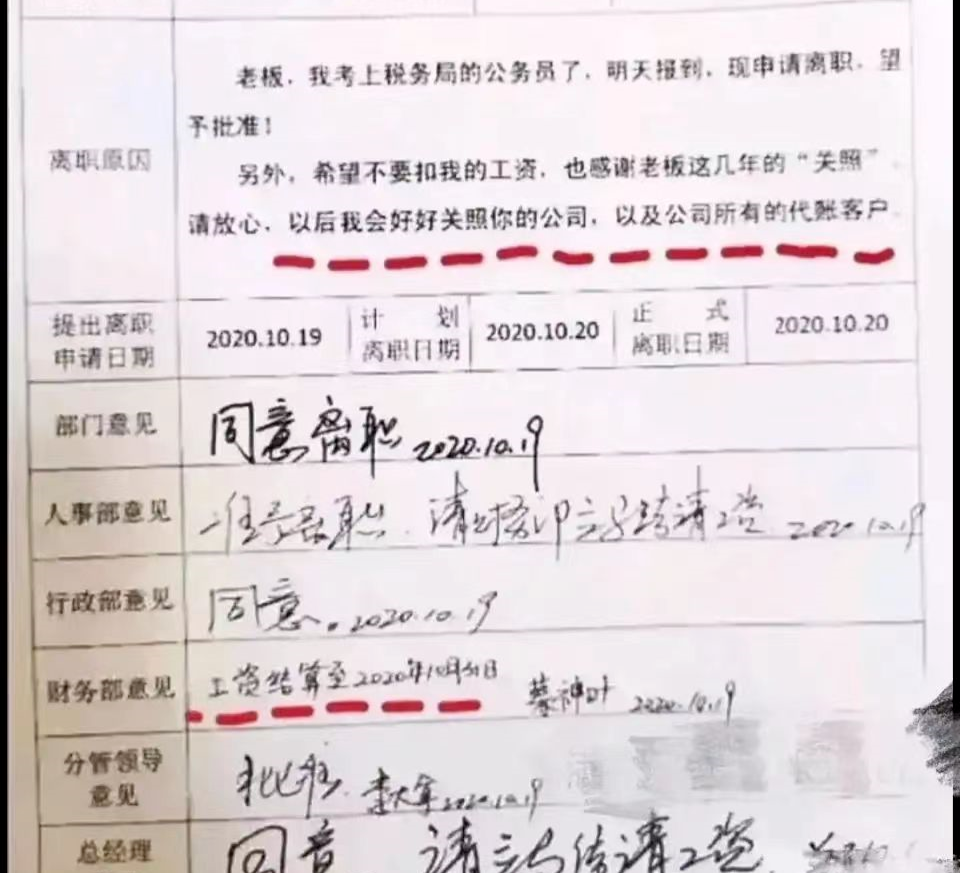 老板，我考上税务局的公务员了，明天报到，现申请离职，望
予批准！
离职原因
另外，希望不要扣我的工资，也感谢老板这几年的“关照”，
请放心，以后我会好好关照你的公司，以及公司所有的代账客户。
提出离职
申请日期
2020.10.19
计划
离职日期
2020.10.20
正式
离职日期
2020.10.20
部门意见
同意离职 2020.10.19
人事部意见
准予离职，请财务即立马结清工资 2020.10.19
行政部意见
同意。2020.10.19
财务部意见
工资结算至2020年10月31日
2020.10.19
分管领导
意见
批准 李大军 2020.10.19
总经理
同意 请立马结清工资